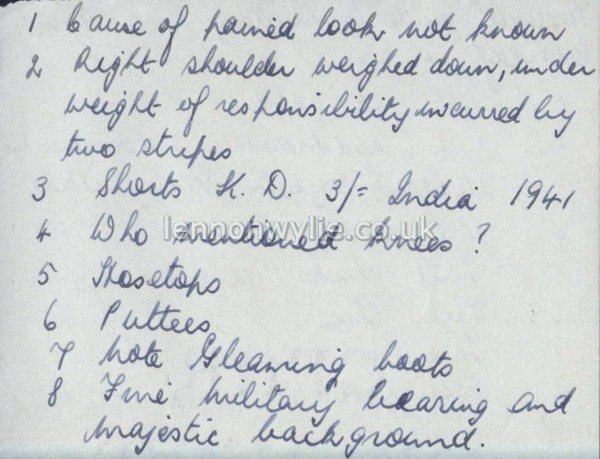 1 Cause of pained look not known
2 Right shoulder weighed down, under
weight of responsibility incurred by
two stripes
3 Shorts K. D. 3/= India 1941
lennonwylie.co.uk
4 Who mentioned knees?
5 Hosetops
6 Puttees
7 Note Gleaming boots
8 Fine military bearing and
majestic background.